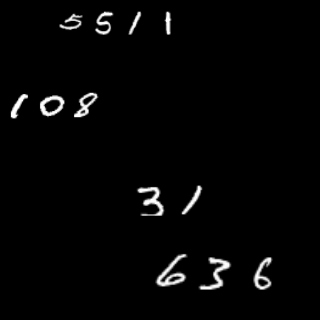 5511
108
31
636